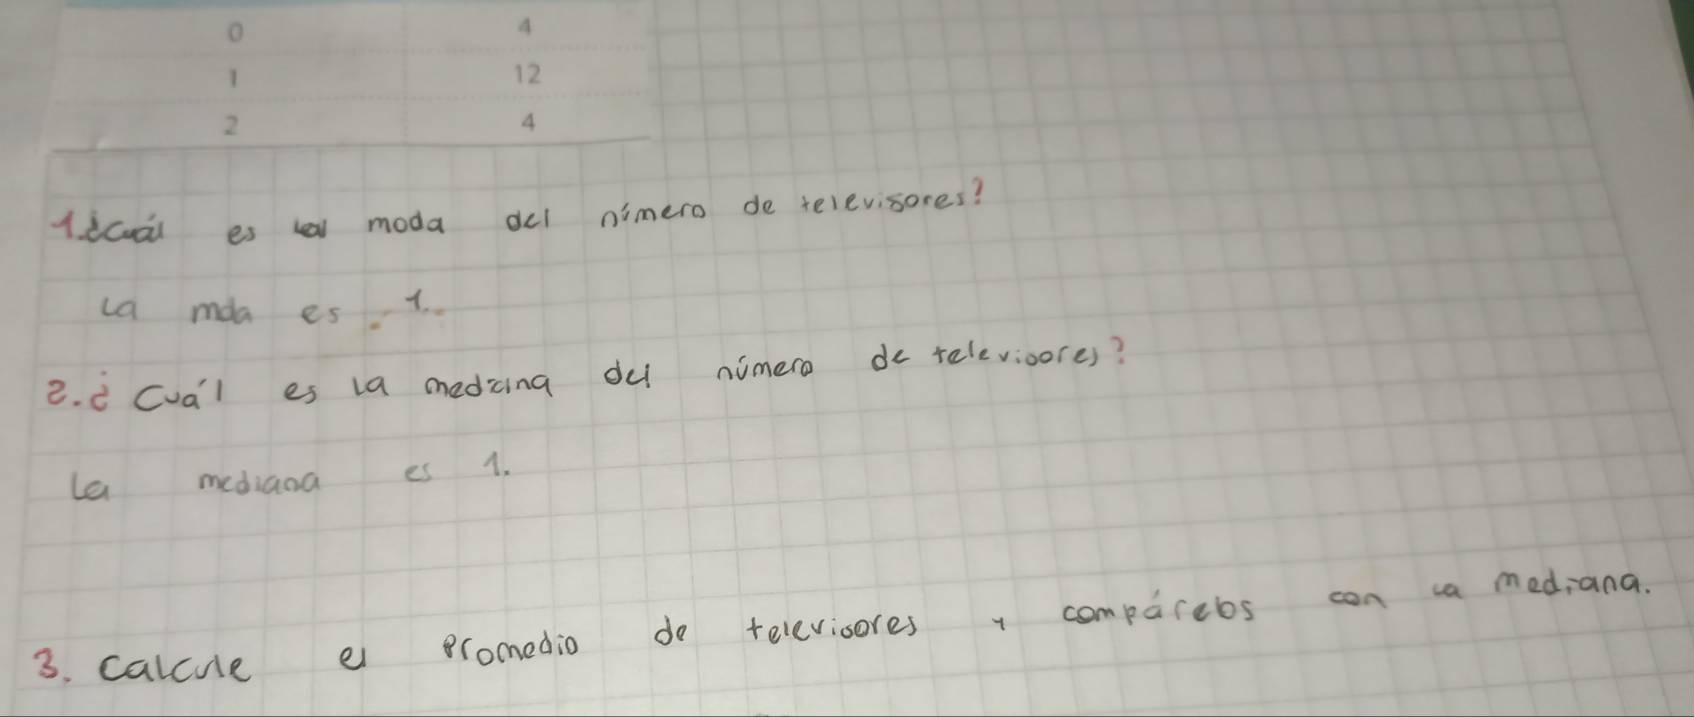 0 4
1 12
2 4
1.¿cuál es la moda del número de televisores?
La mda es 1.
2.¿Cuál es la medina del número de televisores?
La mediana es 1.
3. calcule el promedio de televisores y compárelos con la mediana.